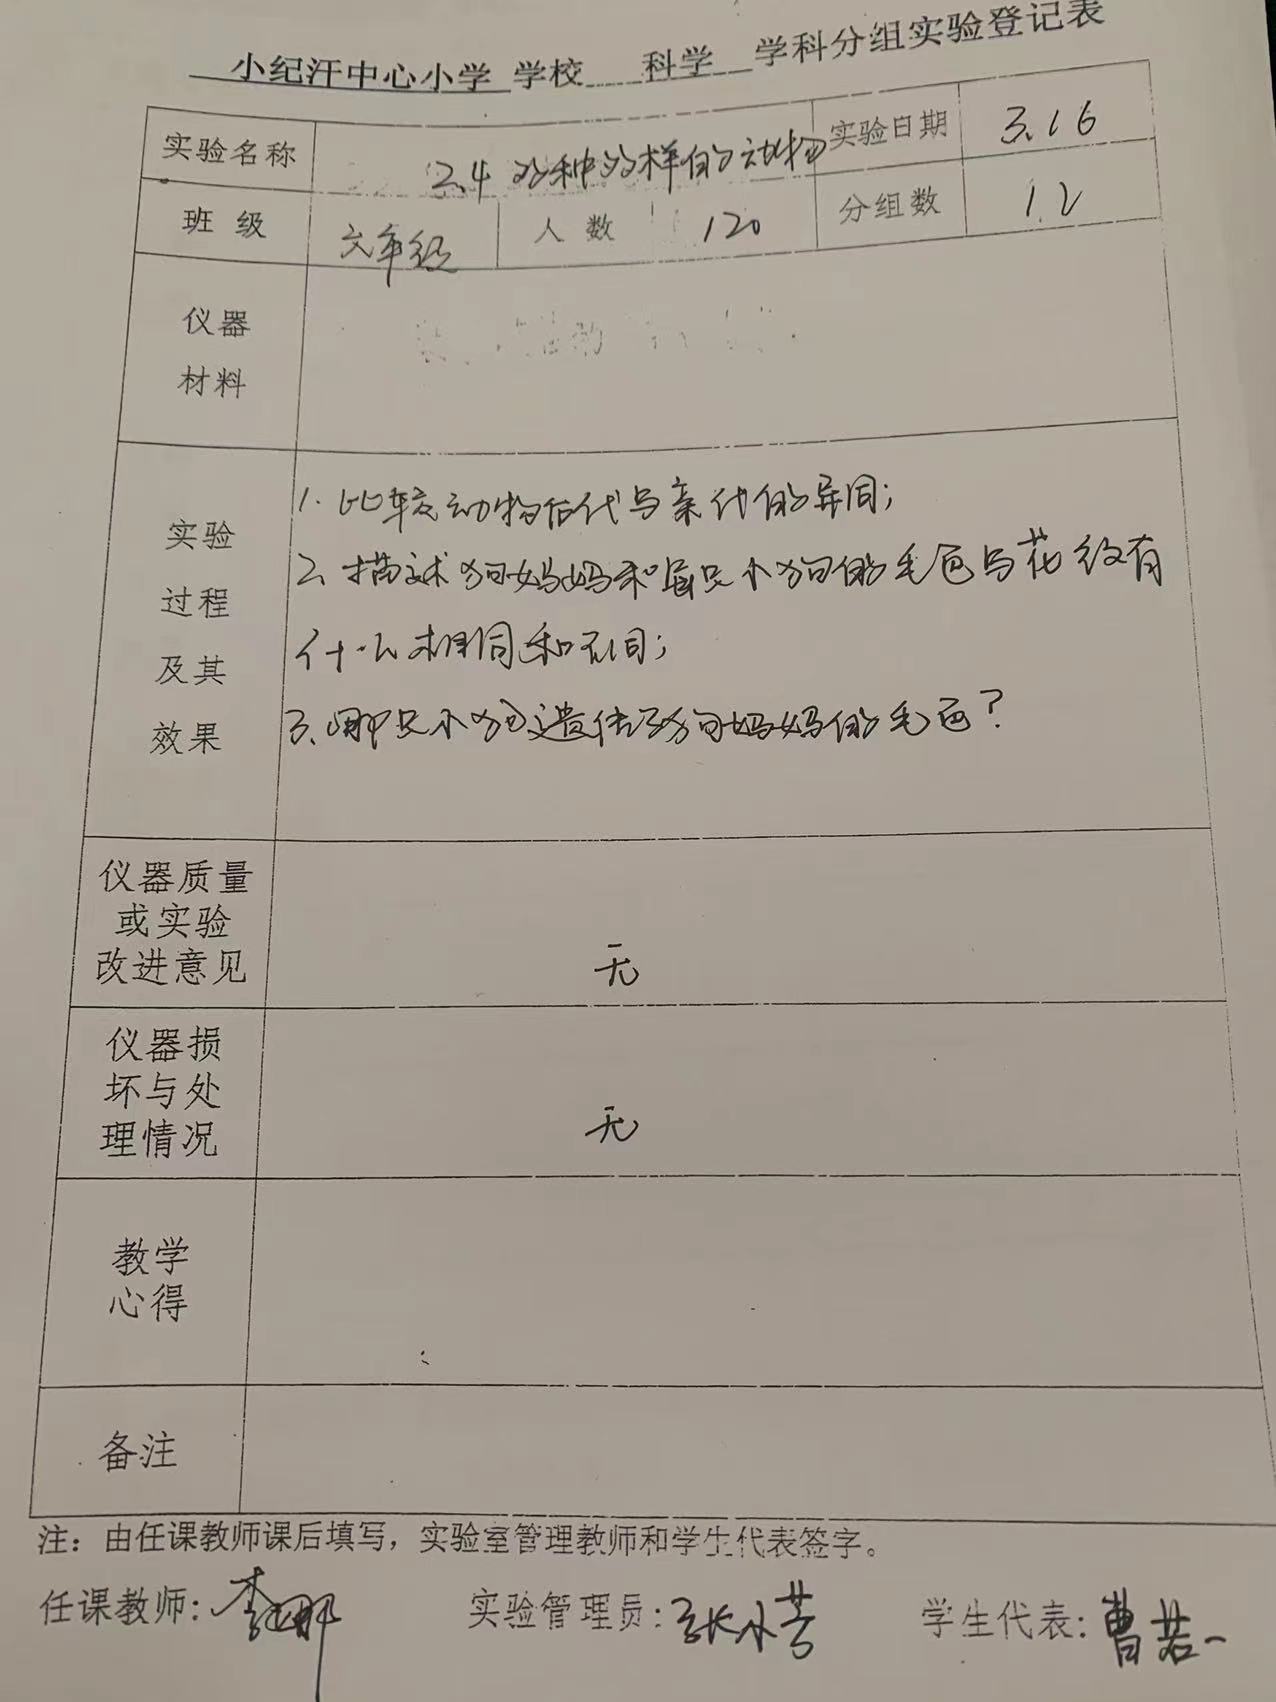 小纪汗中心小学 学校 科学 学科分组实验登记表
实验名称 2.4 各种各样的动物 实验日期 3.16
班 级 六年级 人 数 120 分组数 12
仪器
材料
实验
过程
及其
效果
1. 比较动物后代与亲代的异同；
2. 描述狗妈妈和每只小狗的毛色与花纹有
什么相同和不同；
3. 哪只小狗遗传了狗妈妈的毛色？
仪器质量
或实验
改进意见
无
仪器损
坏与处
理情况
无
教学
心得
备注
注：由任课教师课后填写，实验室管理教师和学生代表签字。
任课教师：李娜 实验管理员：张小芳 学生代表：曹若一